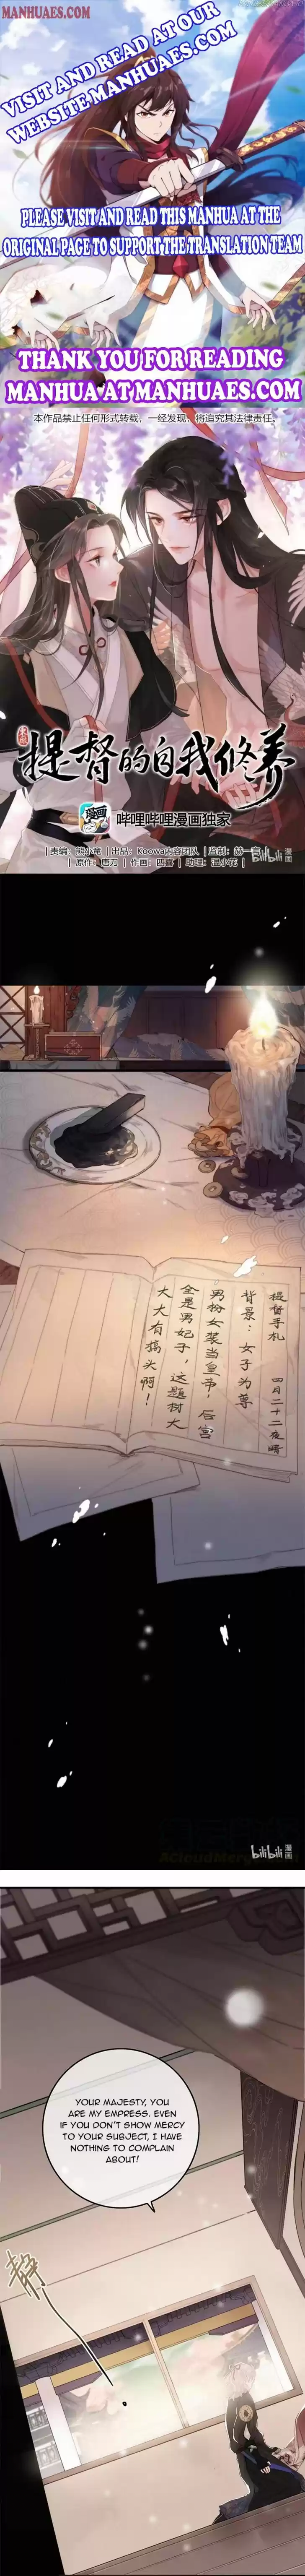 MANHUAES.COM
VISIT AND READ AT OUR
WEBSITE MANHUAES.COM
PLEASE VISIT AND READ THIS MANHUA AT THE
ORIGINAL PAGE TO SUPPORT THE TRANSLATION TEAM
THANK YOU FOR READING
MANHUA AT MANHUAES.COM
本作品禁止任何形式转载,一经发现,将追究其法律责任。
提督的自我修养
漫画 哔哩哔哩漫画独家
| 责编:熊小竜 | 出品:Koowa内容团队 | 监制:赫一高
| 原作:唐刀 | 作画: | 助理:温小花 |
bilibili 漫画
提督手札 四月二十二夜晴
背景:女子为尊
男扮女装当皇帝,后宫
全是男妃子,这题树大
大大有搞头啊!
bilibili 漫画
YOUR MAJESTY, YOU
ARE MY EMPRESS. EVEN
IF YOU DON'T SHOW MERCY
TO YOUR SUBJECT, I HAVE
NOTHING TO COMPLAIN
ABOUT!
静